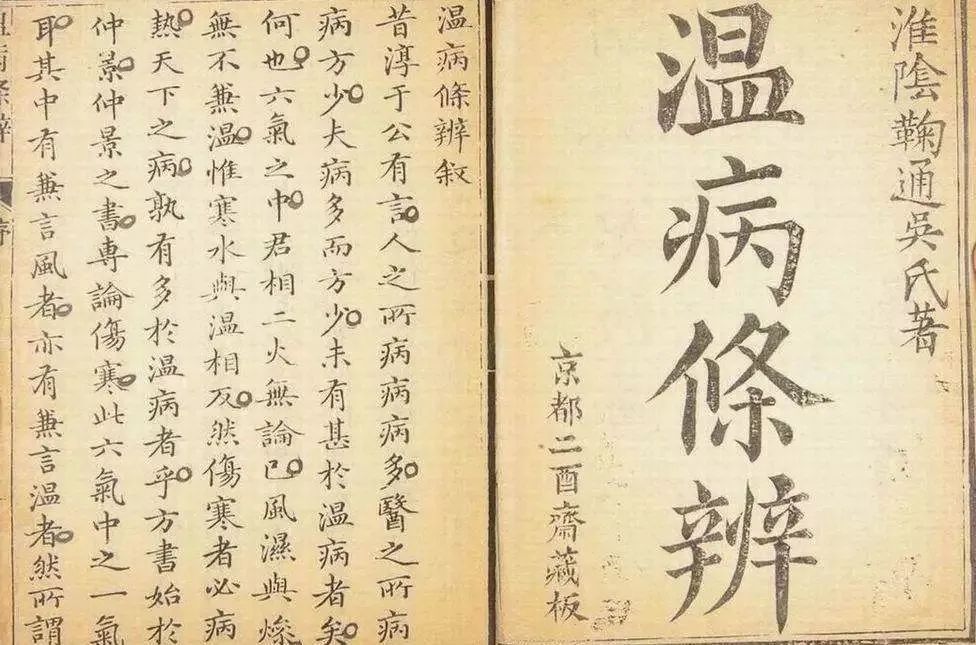 淮陰鞠通吳氏著
温病條辨
京都二酉齋藏板
温病條辨叙
昔淳于公有言。人之所病病病多。醫之所病
病方少。夫病多而方少。未有甚於温病者矣。
何也。六氣之中。君相二火無論已。風濕與燥
無不兼温。惟寒水與温相反。然傷寒者必病
熱。天下之病。孰有多於温病者乎。方書始於
仲景。仲景之書。專論傷寒。此六氣中之一氣
耳。其中有兼言風者。亦有兼言温者。然所謂